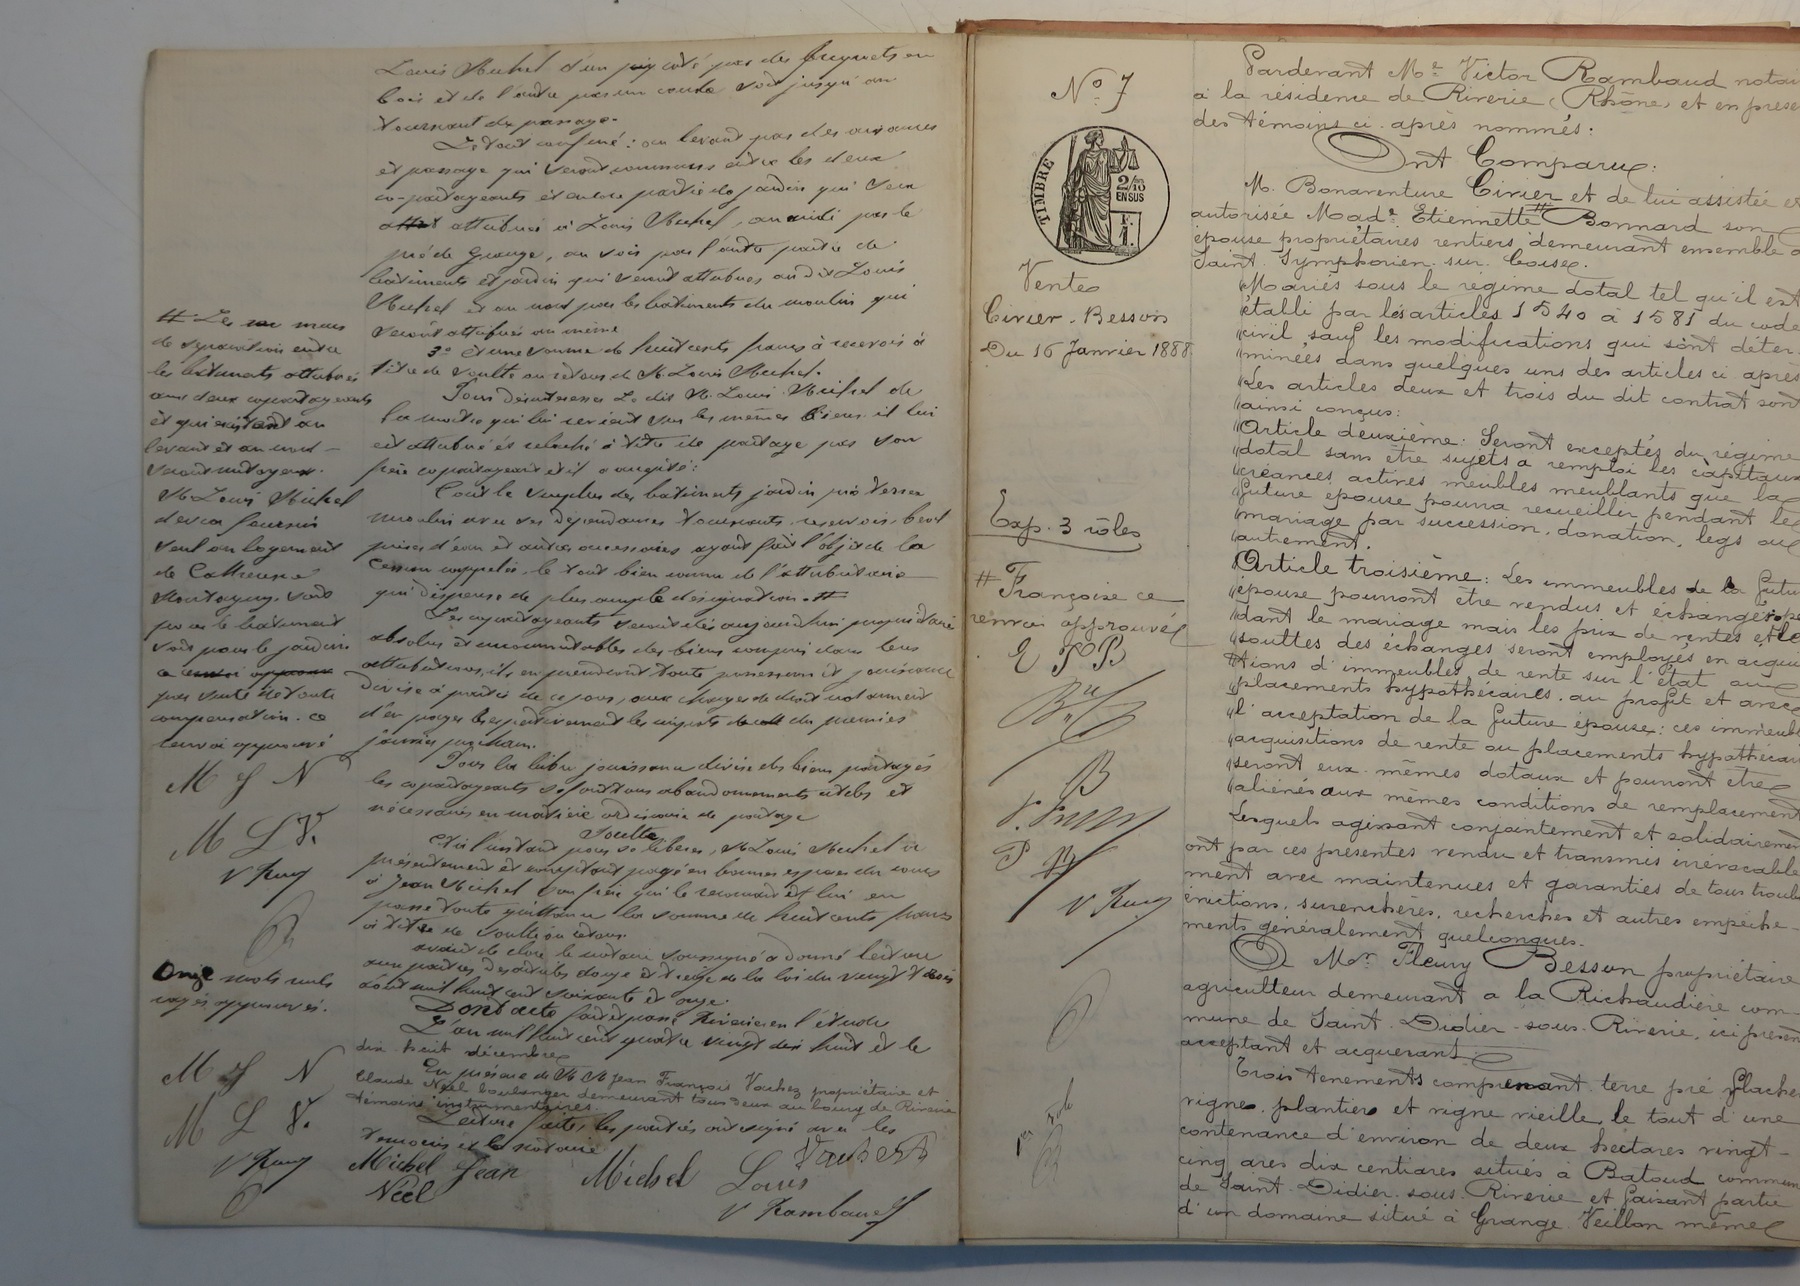 Louis Michel d'un côté par des piquets en
bois et de l'autre par un coude soit jusqu'au
tournant du passage.
Le tout confiné : au levant par des aisances
et passage qui seront communs entre les deux
co-partageants et autre partie de jardin qui sera
attribué à Louis Michel, au midi par le
pré de Grange, au soir par l'autre partie de
bâtiments et jardin qui seront attribués au dit Louis
Michel et au nord par les bâtiments du moulin qui
seront attribués au même
3º Et une somme de huit cents francs à recevoir à
titre de soulte ou retour de M. Louis Michel.
Pour désintéresser Le dit M. Louis Michel de
la moitié qui lui revient sur les mêmes biens il lui
est attribué et relâché à titre de partage par son
frère copartageant et il a accepté :
Tout le surplus des bâtiments jardin pré terres
moulin avec ses dépendances tournants réservoir, bief
prises d'eau et autres accessoires ayant fait l'objet de la
cession rappelée, le tout bien connu de l'attributaire
qui dispense de plus ample désignation. #
Les copartageants seront dès aujourd'hui propriétaires
absolus et incommutables des biens compris dans leurs
attributions, ils en prendront toute possession et jouissance
divise à partir de ce jour, aux charges de droit notamment
d'en payer respectivement les impôts du premier
janvier prochain.
Pour la libre jouissance divise des biens partagés
les copartageants se font tous abandonnements utiles et
nécessaires en matière ordinaire de partage
Soulte
Et à l'instant pour se libérer, M. Louis Michel a
présentement et comptant payé en bonnes espèces du cours
à Jean Michel son frère qui le reconnaît et lui en
passe toute quittance la somme de huit cents francs
à titre de soulte ou retour.
Avant de clore le notaire soussigné a donné lecture
aux parties des articles douze et treize de la loi du vingt trois
août mil huit cent soixante et onze.
Dont acte fait et passé à Riverie en l'étude
L'an mil huit cent quatre vingt dix huit et le
dix-huit décembre
En présence de M.M. Jean François Vachez propriétaire et
Claude Néel boulanger demeurant tous deux au bourg de Riverie
témoins instrumentaires.
Lecture faite, les parties ont signé avec les
témoins et le notaire
Michel Jean Michel Louis Vachez
Néel V Rambaud
# Les murs
de séparation entre
les bâtiments attribués
aux deux copartageants
et qui existent au
levant et au nord
seront mitoyens.
M. Louis Michel
devra fournir
seul un logement
de Catherine
soit
pour le bâtiment
soit pour le jardin
par suite de toute
compensation. ce
renvoi approuvé
M J N
M L V.
V Ramb
Onze mots nuls
rayés approuvés.
M J N
M L V.
V Ramb
Nº 7
TIMBRE
2/10 EN SUS
Ventes
Civier-Besson
Du 16 Janvier 1888
Exp. 3 rôles
# Françoise ce
renvoi approuvé
V Ramb
1er rôle
Pardevant Me Victor Rambaud notai
à la résidence de Riverie (Rhône) et en prése
des témoins ci-après nommés :
Ont Comparu :
M. Bonaventure Civier et de lui assistée et
autorisée Made Etiennette # Bonnard son
épouse propriétaires rentiers demeurant ensemble à
Saint-Symphorien-sur-Coise.
Mariés sous le régime dotal tel qu'il est
établi par les articles 1540 à 1581 du code
"civil, sauf les modifications qui sont déter-
"minées dans quelques uns des articles ci-après
"Les articles deux et trois du dit contrat sont
"ainsi conçus :
"Article deuxième : Seront exceptés du régime
"dotal sans être sujets à remploi les capitaux
"créances actives meubles meublants que la
"future épouse pourra recueillir pendant le
"mariage par succession, donation, legs ou
"autrement.
"Article troisième : Les immeubles de la futu
"épouse pourront être vendus et échangés pe
"dant le mariage mais les prix de ventes et le
"soultes des échanges seront employés en acqui
"tions d'immeubles, de rente sur l'état ou
"placements hypothécaires, au profit et avec
"l'acceptation de la future épouse ; ces immeub
"acquisitions de rente ou placements hypothécai
"seront eux-mêmes dotaux et pourront être
"aliénés aux mêmes conditions de remplacement
Lesquels agissant conjointement et solidairemen
ont par ces présentes vendu et transmis irrévocable
ment avec maintenues et garanties de tous troubl
évictions, surenchères, recherches et autres empêche-
ments généralement quelconques.
A Mr Fleury Besson propriétaire
agriculteur demeurant à la Richaudière com-
mune de Saint-Didier-sous-Riverie, ici présen
acceptant et acquérant
Trois tenements comprenant terre pré flache
vignes, plantiers et vigne vieille, le tout d'une
contenance d'environ de deux hectares vingt-
cinq ares dix centiares situés à Batoud commun
de Saint-Didier-sous-Riverie et faisant partie
d'un domaine situé à Grange Veillon même